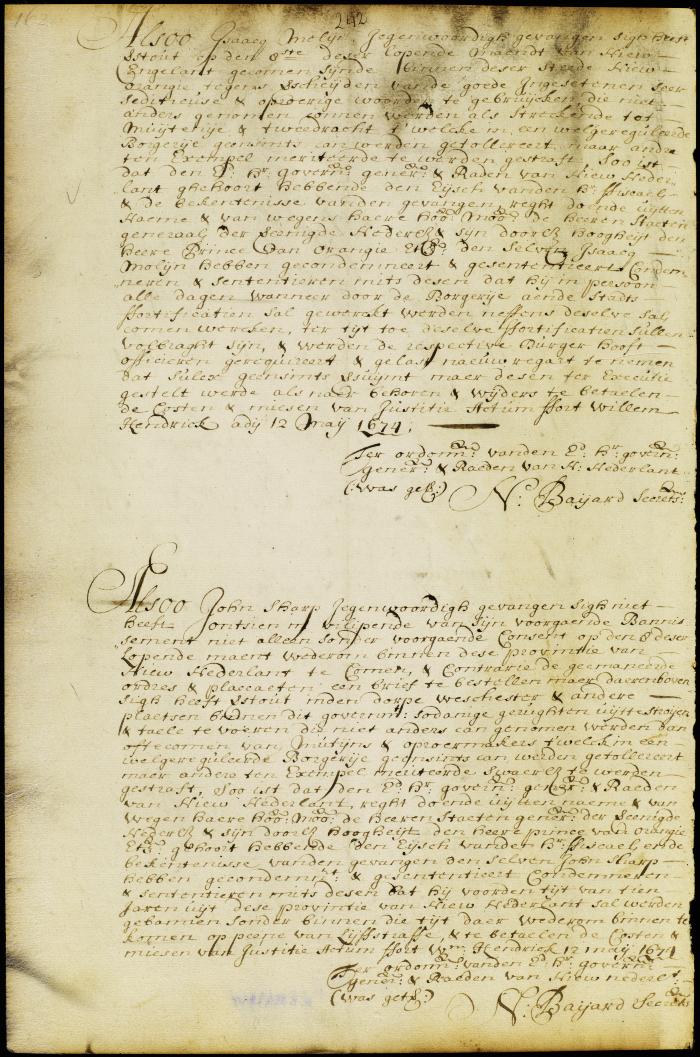 242
Alsoo Isaacq Molyn, Jegenwoordigh gevangen sigh heeft
Vstout op den 8ste deser lopende Maendt van Niew
Engelant gecomen synde binnen deser steede Niew
orangie tegens Vscheijden van de goede Ingesetenen seer
seditieuse & oproerige woorden te gebruijcken die niet
anders genomen connen werden als streckende tot
Muijterije & tweedracht t'welcke in een welgereguleerde
Borgerije geensints can werden getollereert, maar andre
ten Exempel meriteerde te werden gestraft, Soo ist
dat den Ed: Hr. govern: gener: & Raden van Niew Neder-
lant gehoort hebbende den Eijsch vanden Hr. ffiscael
& de bekentenisse vanden gevangen, reght doende uijtten
Naeme & van wegens haere Hoo: Moo: de Heeren Staeten
generaal der Veenigde Nederlden & syn doorl: Hoogheijt den
Heere Prince van Orangie Etca: den selven Isaacq
Molyn hebben gecondemneert & gesententieert Condem-
neren & sententieren mits desen dat hij in persoon
alle dagen wanneer door de Borgerije aende Stadts
ffortificatien sal gewerckt werden neffens deselve sal
comen wercken, ter tyt toe deselve ffortificatien sullen
volbraght syn, & werden de respective Burger hooft
officieren gerequireert & gelast naeuw regart te nemen
dat sulcx geensints Vsuijmt maer desen ter Executie
gestelt werde als naer behoren & wyders te betaelen
de Costen & miesen van Justitie Actum ffort Willem
Hendrick ady 12 Maij 1674.
Ter ordonn: vanden Ed: Hr. govern:
gener: & Raeden van N: Nederlant
(:was get:) N: Baijard Secrets:
Alsoo John Sharp Jegenwoordigh gevangen sigh niet
heeft ontsien in vilipende van syn voorgaende Bannis
sement niet alleen sonder voorgaende Consent op den 8 deser
lopende maent wederom binnen dese provintie van
Niew Nederlant te Comen, & Contrarie de geemaneerde
ordres & placaeten een brief te bestellen maer daerenboven
sigh heeft Vstout inden dorpe Weschester & andere
plaetsen binnen dit governt: sodanige gerughten uijtte stroijen
& taele te voeren die niet anders can genomen werden dan
oft ecomen van Mutijns & oproermakers t'welck in een
welgereguleerde Borgerije geensints can werden getollereert
maer andere ten Exempel meriteerde swaerlk te werden
gestraft, Soo ist dat den Ed: Hr. govern: gener: & Raeden
van Niew Nederlant, reght doende uijtten naeme & van
wegen haere Hoo: Moo: de Heeren Staeten gener: der Veenigde
Nederld & syn doorl: Hoogheijt den heere prince vand orangie
Etca: gehoort hebbende den Eijsch vanden Hr. ffiscael, en de
bekentenisse vanden gevangen den selven John Sharp
hebben gecondemnt & gesententieert Condemneren
& sententieren mits desen dat hij voorden tyt van tien
Jaren uijt dese provintie van Niew Nederlant sal werden
gebannen sonder binnen die tyt daer wederom binnen te
komen op peene van Lyffstraffe, & te betaelen de Costen &
miesen van Justitie Actum ffort Wm: Hendrick 12 maij 1674
Ter ordonn: vanden Ed: Hr. govern:
gener: & Raeden van Niew nederlt:
(was get:) N: Baijard Secrets